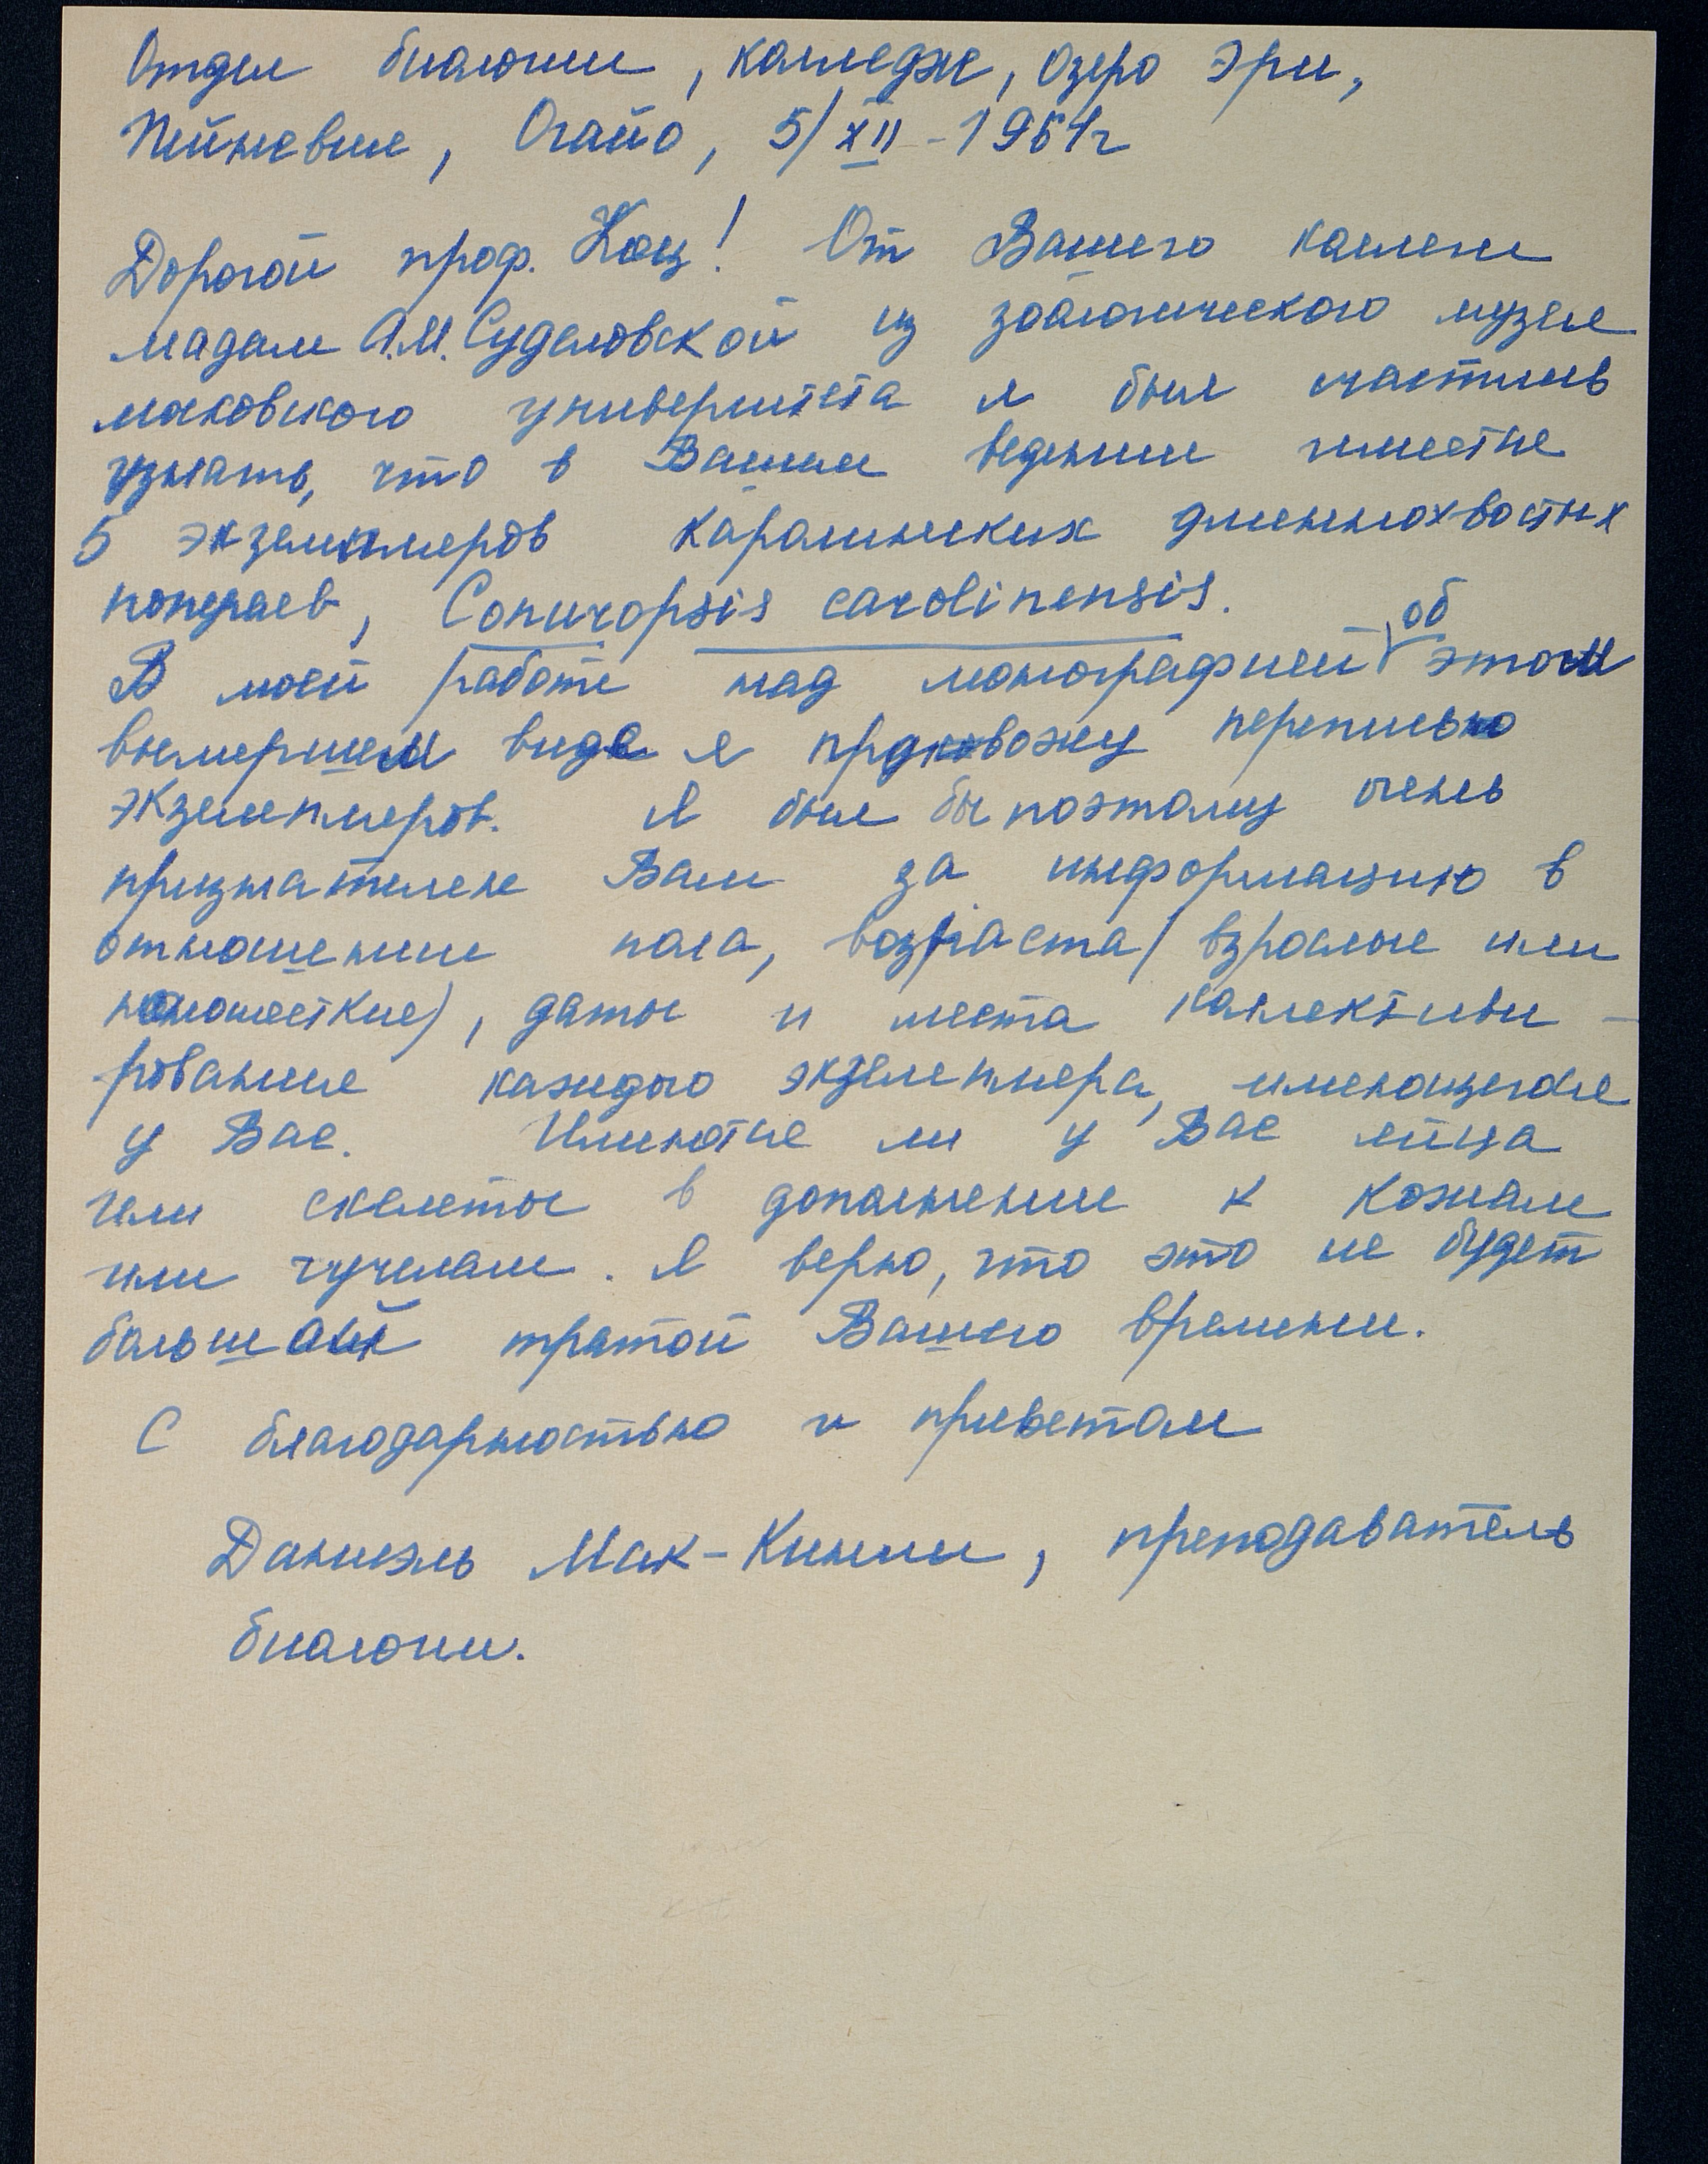 Отдел биологии, колледж, Озеро Эри,
Пейневие, Огайо, 5/XII - 1964г
Дорогой проф. Коц! От Вашего коллеги
мадам А.М. Судиловской из зоологического музея
московского университета я был счастлив
узнать, что в Вашем ведении имеется
5 экземпляров каролинских длиннохвостых
попугаев, Conuropsis carolinensis.
В моей работе над монографией об этом
вымершем виде я провожу перепись
экземпляров. Я был бы поэтому очень
признателен Вам за информацию в
отношении пола, возраста (взрослые или
юношеские), даты и места коллективи-
рования каждого экземпляра, имеющегося
у Вас. Имеются ли у Вас яйца
или скелеты в дополнение к кожам
или чучелам. Я верю, что это не будет
большой тратой Вашего времени.
С благодарностью и приветом
Даниэль Мак-Кинли, преподаватель
биологии.